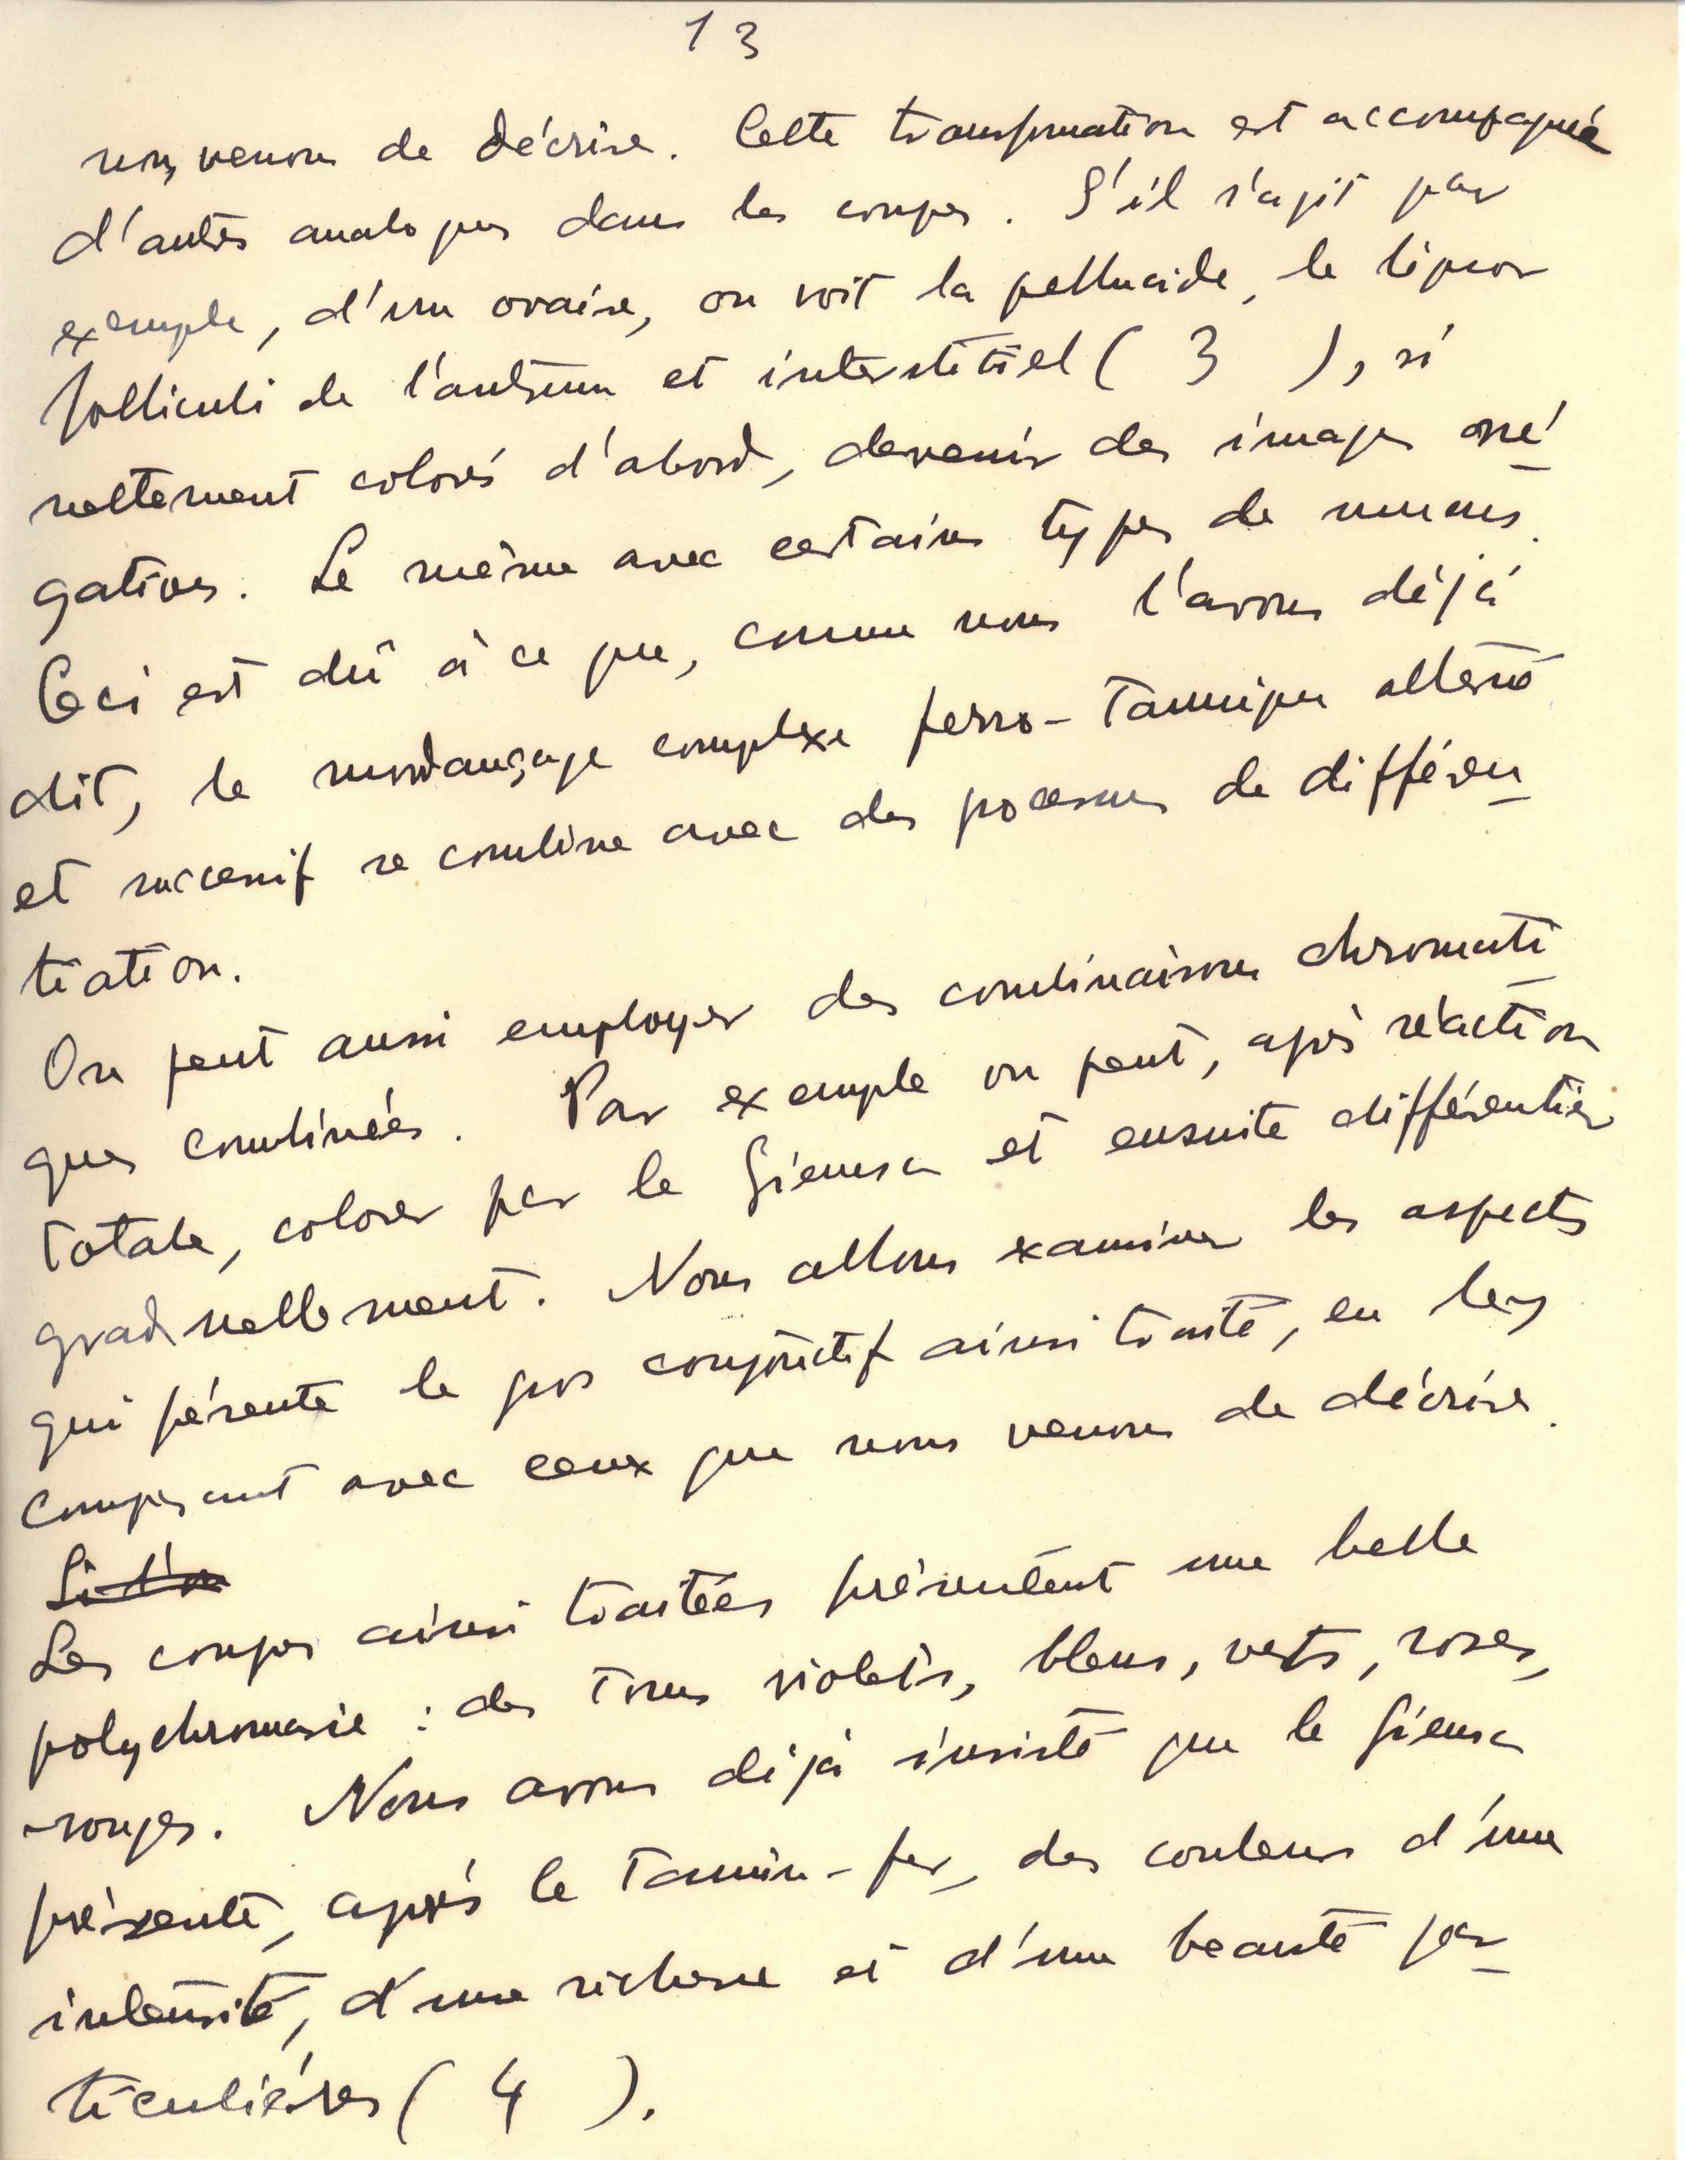 13
nous venons de décrire. Cette transformation est accompagnée
d'autres analogues dans les coupes. S'il s'agit par
exemple, d'un ovaire, on voit la pellucide, le liquor
folliculi de l'antrum et interstitiel ( 3 ), si
nettement colorés d'abord, devenir des images né
gatives. Le même avec certains types de mucus.
Ceci est dû à ce que, comme nous l'avons déjà
dit, le mordançage complexe ferro-tannique alterné
et successif se combine avec des processus de différen
tiation.
On peut aussi employer des combinaisons chromati
ques combinées. Par exemple on peut, après réaction
totale, colorer par le Giemsa et ensuite différentier
graduellement. Nous allons examiner les aspects
qui présente le gros conjonctif ainsi traité, en les
comparant avec ceux que nous venons de décrire.
Si l'on
Les coupes ainsi traitées présentent une belle
polychromasie : des tons violets, bleus, verts, roses,
rouges. Nous avons déjà insisté que le Giemsa
présente, après le tannin-fer, des couleurs d'une
intensité, d'une richesse et d'une beauté par-
ticulières ( 4 ).